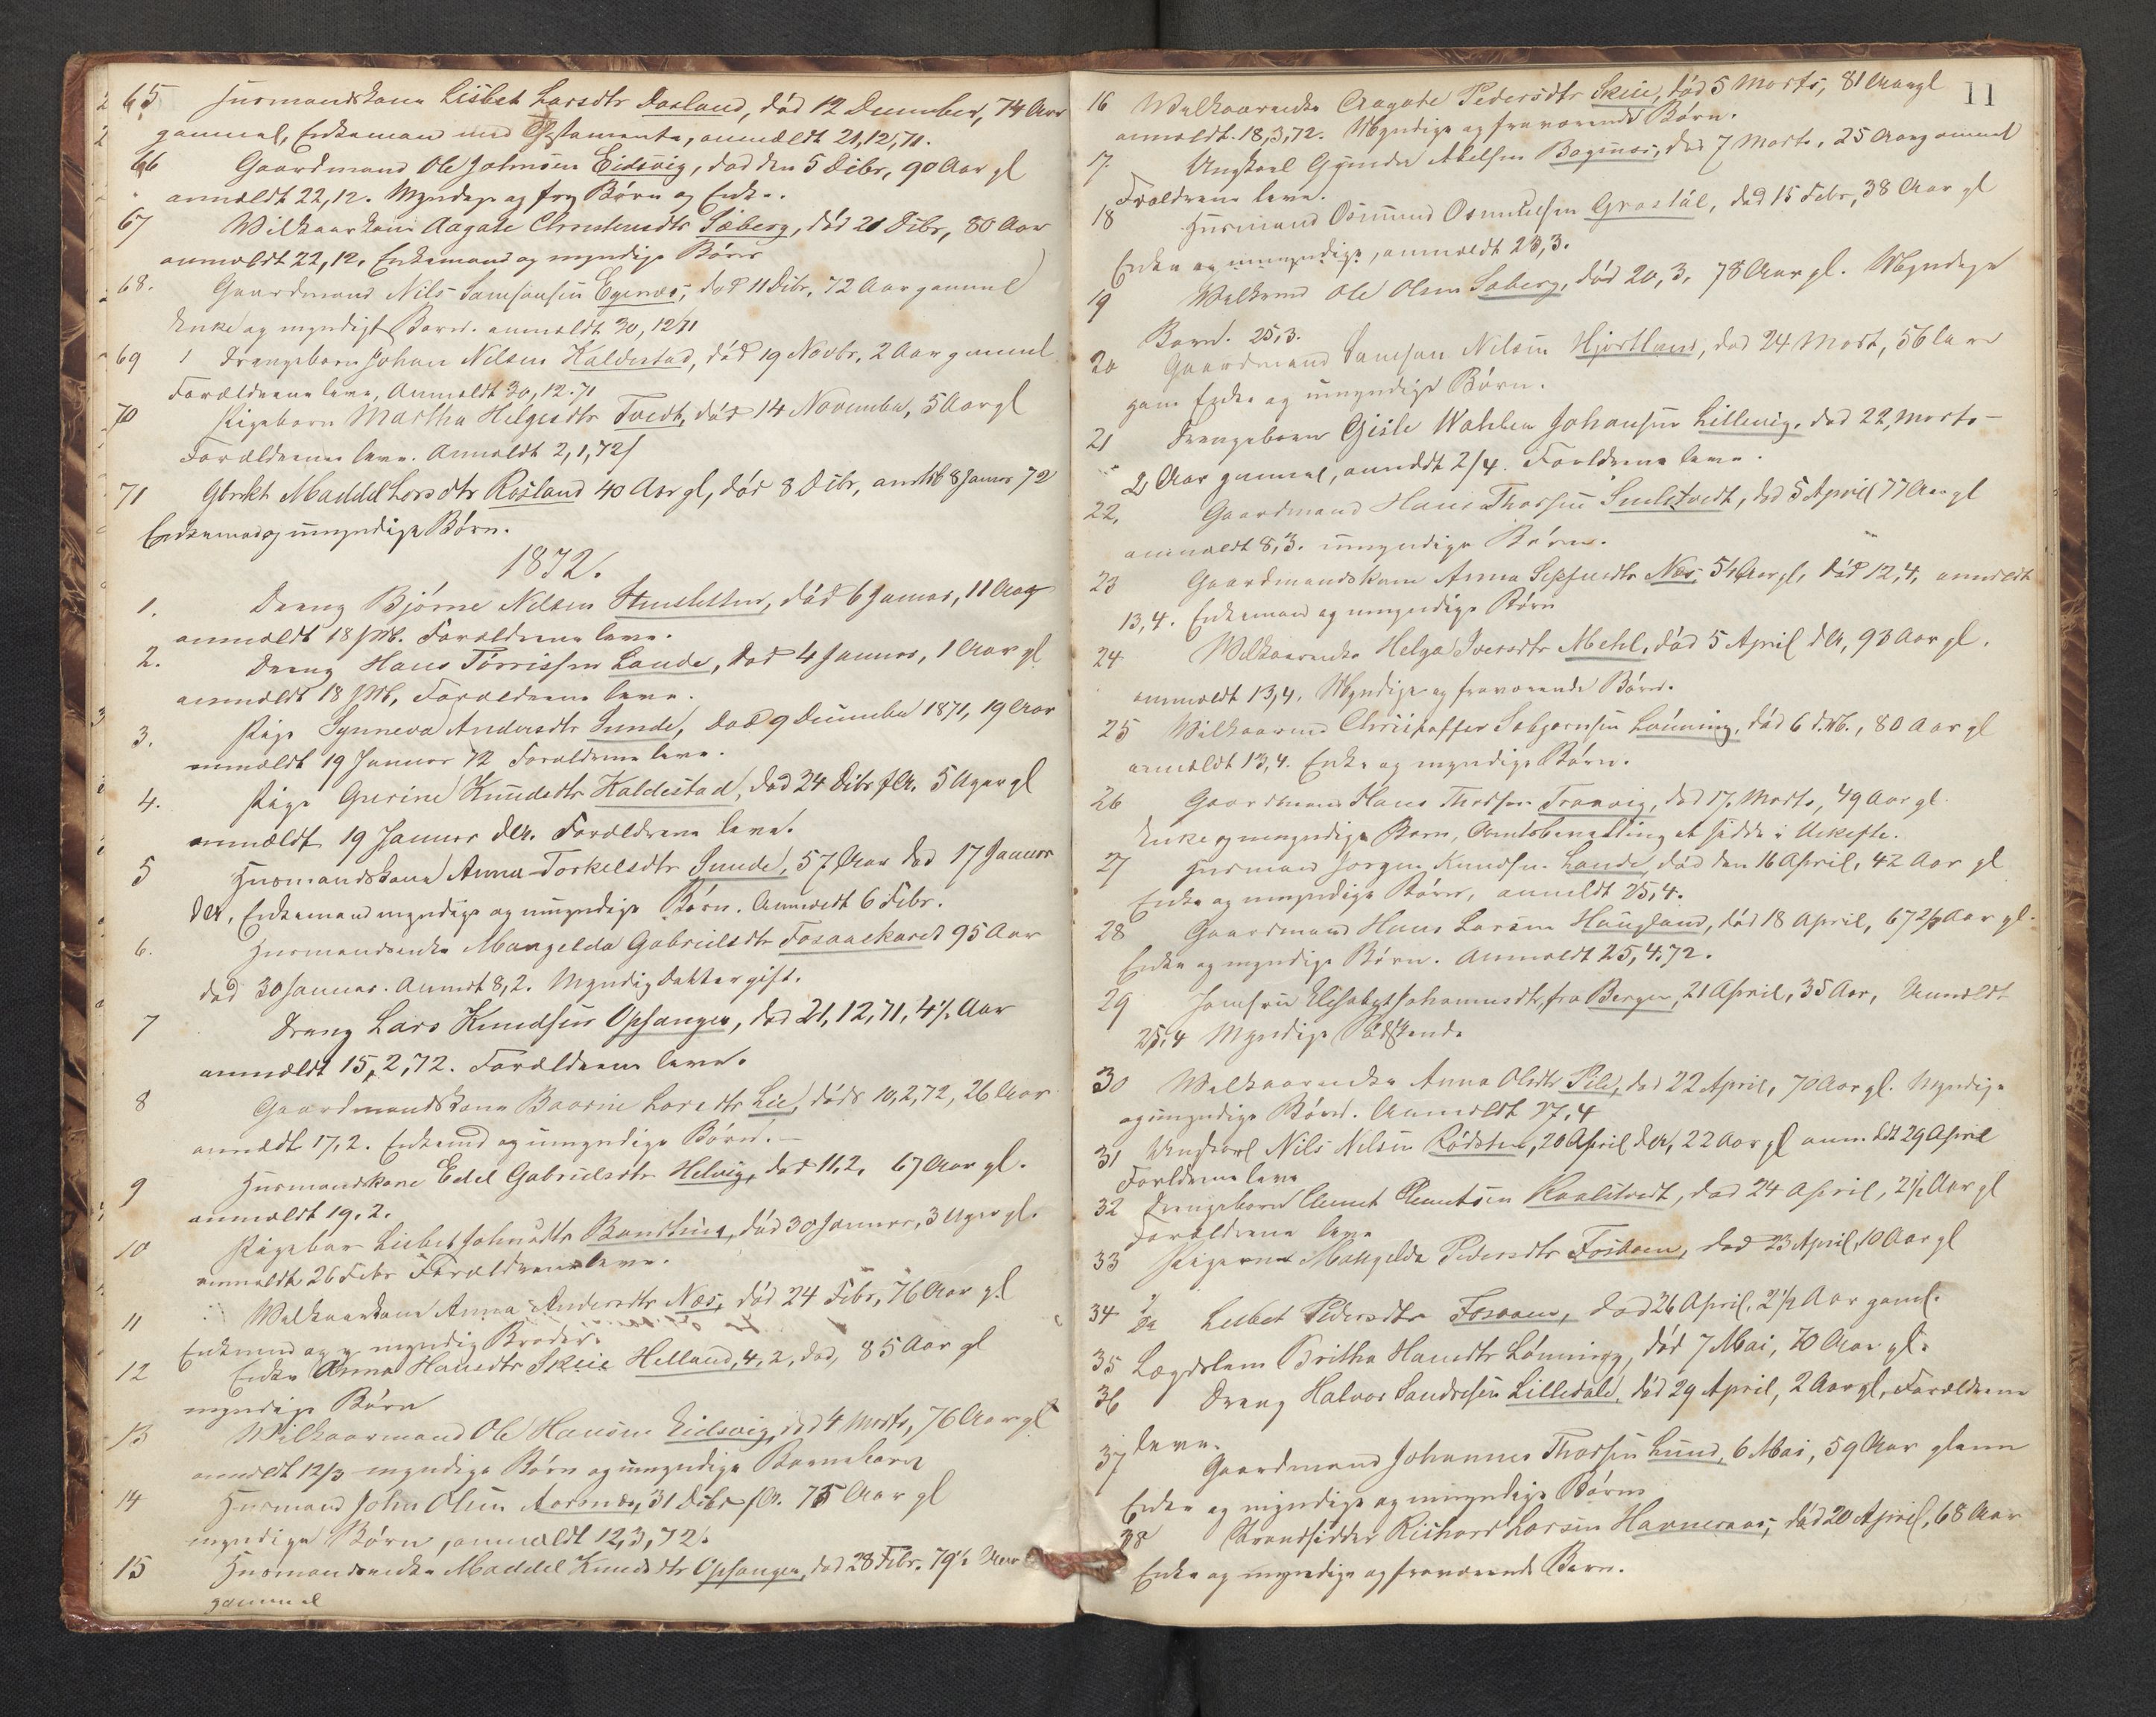 65 Husmandskone Lisbet Larsdtr Døsland, død 12 December, 74 Aar
gammel, Enkemand med Testamente, anmældt 21,12,71.
66 Gaardmand Ole Johnsen Eidsvig, død den 5 Debr, 90 Aar gl
anmældt 22,12. Myndige og frav Børn og Enke.
67 Vilkaarkone Aagate Christensdtr Sæberg, død 20 Debr, 80 Aar
anmældt 22,12. Enkemand og myndige Børn
68. Gaardmand Nils Samsonsen Egenæs, død 11 Debr, 72 Aar gammel
Enke og myndigt Barn. anmældt 30,12 71
69 Drengebarn Johan Nilsen Kaldestad, død 19 Novbr, 2 Aar gammel
Forældrene leve, Anmeldt 30,12.71
70 Pigebarn Martha Helgesdtr Tvedt, død 14 November, 5 Aar gl
Forældrene leve. Anmeldt 2,1,72
71 Maddel Larsdtr Røsland 40 Aar gl, død 8 Debr, anm 8 Januar 72
Enkemand og umyndige Børn.
1872.
1. Dreng Bjørne Nilsen, død 6 Januar, 11 Aar
anmældt 18. Forældrene leve.
2. Dreng Hans Tørrissen Lande, død 4 Januar, 1 Aar gl
anmældt 18, Forældrene leve.
3. Pige Synneva Andersdtr Sunde, død 9 December 1871, 19 Aar
anmældt 19 Januar 72 Forældrene leve.
4. Pige Gurine Knudsdtr Kaldestad, død 24 Debr f.A. 5 Uger gl
anmældt 19 Januar d.A. Forældrene leve.
5 Husmandskone Anna Torkelsdtr Sunde, 57 Aar død 17 Januar
d.A. Enkemand myndige og umyndige Børn. Anmeldt 6 Febr.
6. Husmandsenke Mangelda Gabrielsdtr Fosaaskaret 95 Aar
død 30 Januar. Anmeldt 8,2. Myndig Datter gift.
7 Dreng Lars Knudsen Opsanger, død 21,12,71, 4½ Aar
anmældt 15,2,72. Forældrene leve.
8 Gaardmandskone Baarine Larsdtr Lie, død 10,2,72, 26 Aar
anmeldt 17,2. Enkemd og umyndige Børn.
9 Husmandskone Edel Gabrielsdtr Helvig, død 11,2, 67 Aar gl.
anmældt 19,2.
10 Pigebarn Lisbet Johnsdtr, død 30 Januar, 3 Uger gl.
anmældt 26 Febr Forældrene leve.
11 Velkaarkone Anna Andersdtr Næs, død 24 Febr, 76 Aar gl
Enkemd og myndig Broder.
12 Enke Anna Hansdtr Skeie Helland, 4,2, død, 85 Aar gl
myndige Børn
13 Vilkaarmand Ole Hansen Eidsvig, død 4 Marts, 76 Aar gl
anmeldt 12/3 myndige Børn og umyndige Børnebørn
14 Husmand John Olsen, 31 Debr f.A. 75 Aar gl
myndige Børn, anmældt 12,3,72.
15 Husmandsenke Maddel Knudsdtr Opsanger, død 28 Febr. 79½ Aar
gammel
11
16 Velkaarenke Aagate Pedersdtr Skeie, død 5 Marts, 81 Aar gl
anmældt 18,3,72. Myndige og fraværende Børn.
17. Ungkarl Gunder Abelsen Bogsnæs, død 7 Marts, 25 Aar gammel
Forældrene leve.
18 Husmand Osmund Osmundsen, død 15 Febr, 38 Aar gl
Enke og umyndige, anmældt 23,3.
19 Velkmd Ole Olsen Sæberg, død 20,3, 78 Aar gl. Myndige
Børn. 25,3.
20 Gaardmand Samson Nilsen Hjortland, død 24 Mart, 56 Aar
gam Enke og umyndige Børn.
21 Drengebarn Gisle Wahlen Johansen Lillevig, død 22 Marts
2 Aar gammel, anmeldt 2/4. Forældrene leve.
22, Gaardmand Hans Thorsen, død 5 April 77 Aar gl
anmældt 8,3. umyndige Børn.
23 Gaardmandskone Anna Næs, 54 Aar gl, død 12,4, anmeldt
13,4. Enkemand og umyndige Børn
24 Velkaarenke Helga Iversdtr Mehl, død 5 April d.A, 93 Aar gl.
anmældt 13,4. Myndige og fraværende Børn.
25 Vilkaarmd Christoffer Lønning, død 6, 80 Aar gl
anmældt 13,4. Enke og myndige Børn.
26 Gaardmand Hans Thorsen Tranvig, død 17 Marts, 49 Aar gl.
Enke og umyndige Børn, Amtsbevilling at sidde i Uskifte.
27 Husmand Jørgen Knudsen Lande, død den 16 April, 42 Aar gl
Enke og umyndige Børn, anmeldt 25,4.
28 Gaardmand Hans Larsen Haugland, død 18 April, 67 2/3 Aar gl.
Enke og myndige Børn. Anmeldt 25,4,72.
29 Jomfru Elisabet Johannesdtr fra Bergen, 21 April, 35 Aar, Anmeldt
25,4 Myndige Sødskende
30 Velkaarenke Anna Olsdtr, død 22 April, 70 Aar gl. Myndige
og umyndige Børn. Anmeldt 27,4
31 Ungkarl Nils Nilsen Rødsten, 20 April d.A, 22 Aar gl anmeldt 29 April
Forældrene leve
32 Drengebarn Clemet Clemetsen, død 24 April, 2½ Aar gl
Forældrene leve
33 Pigebarn Mangelda Pedersdtr Fosaaen, død 23 April, 10 Aar gl
34 Do Lisbet Pedersdtr Fosaaen, død 26 April, 2½ Aar gaml.
35 Lægdslem Britha Hansdtr Lønning, død 7 Mai, 70 Aar gl.
36 Dreng Halvor Sandersen Lilledale, død 29 April, 2 Aar gl, Forældrene
leve.
37 Gaardmand Johannes Thorsen Lund, 6 Mai, 59 Aar
Enke og myndige og umyndige Børn
38 Strandsidder Richard Larsen Havneraas, død 20 April, 68 Aar
Enke og myndige og fraværende Børn.